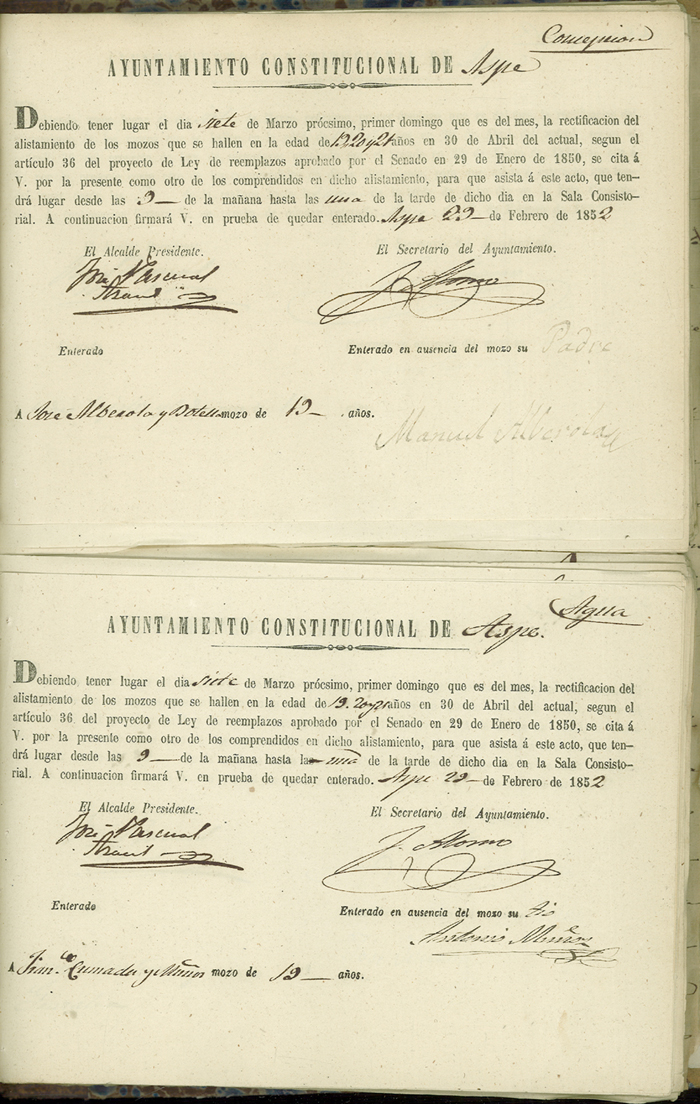 Concepcion
AYUNTAMIENTO CONSTITUCIONAL DE Aspe
Debiendo tener lugar el dia siete de Marzo prócsimo, primer domingo que es del mes, la rectificacion del
alistamiento de los mozos que se hallen en la edad de 19, 20 y 21 años en 30 de Abril del actual, segun el
artículo 36 del proyecto de Ley de reemplazos aprobado por el Senado en 29 de Enero de 1850, se cita á
V. por la presente como otro de los comprendidos en dicho alistamiento, para que asista á este acto, que ten-
drá lugar desde las 9 de la mañana hasta las una de la tarde de dicho dia en la Sala Consisto-
rial. A continuacion firmará V. en prueba de quedar enterado. Aspe 29 de Febrero de 1852
El Alcalde Presidente. El Secretario del Ayuntamiento.
José Pascual J. Alonso
Enterado Enterado en ausencia del mozo su Padre
A Jose Alberola y Botella mozo de 19 años.
Manuel Alberola
Agua
AYUNTAMIENTO CONSTITUCIONAL DE Aspe.
Debiendo tener lugar el dia siete de Marzo prócsimo, primer domingo que es del mes, la rectificacion del
alistamiento de los mozos que se hallen en la edad de 19, 20 y 21 años en 30 de Abril del actual, segun el
artículo 36 del proyecto de Ley de reemplazos aprobado por el Senado en 29 de Enero de 1850, se cita á
V. por la presente como otro de los comprendidos en dicho alistamiento, para que asista á este acto, que ten-
drá lugar desde las 9 de la mañana hasta la una de la tarde de dicho dia en la Sala Consisto-
rial. A continuacion firmará V. en prueba de quedar enterado. Aspe 29 de Febrero de 1852
El Alcalde Presidente. El Secretario del Ayuntamiento.
José Pascual J. Alonso
Enterado Enterado en ausencia del mozo su tio
Antonio Muñoz
A Fran.co y Muños mozo de 19 años.